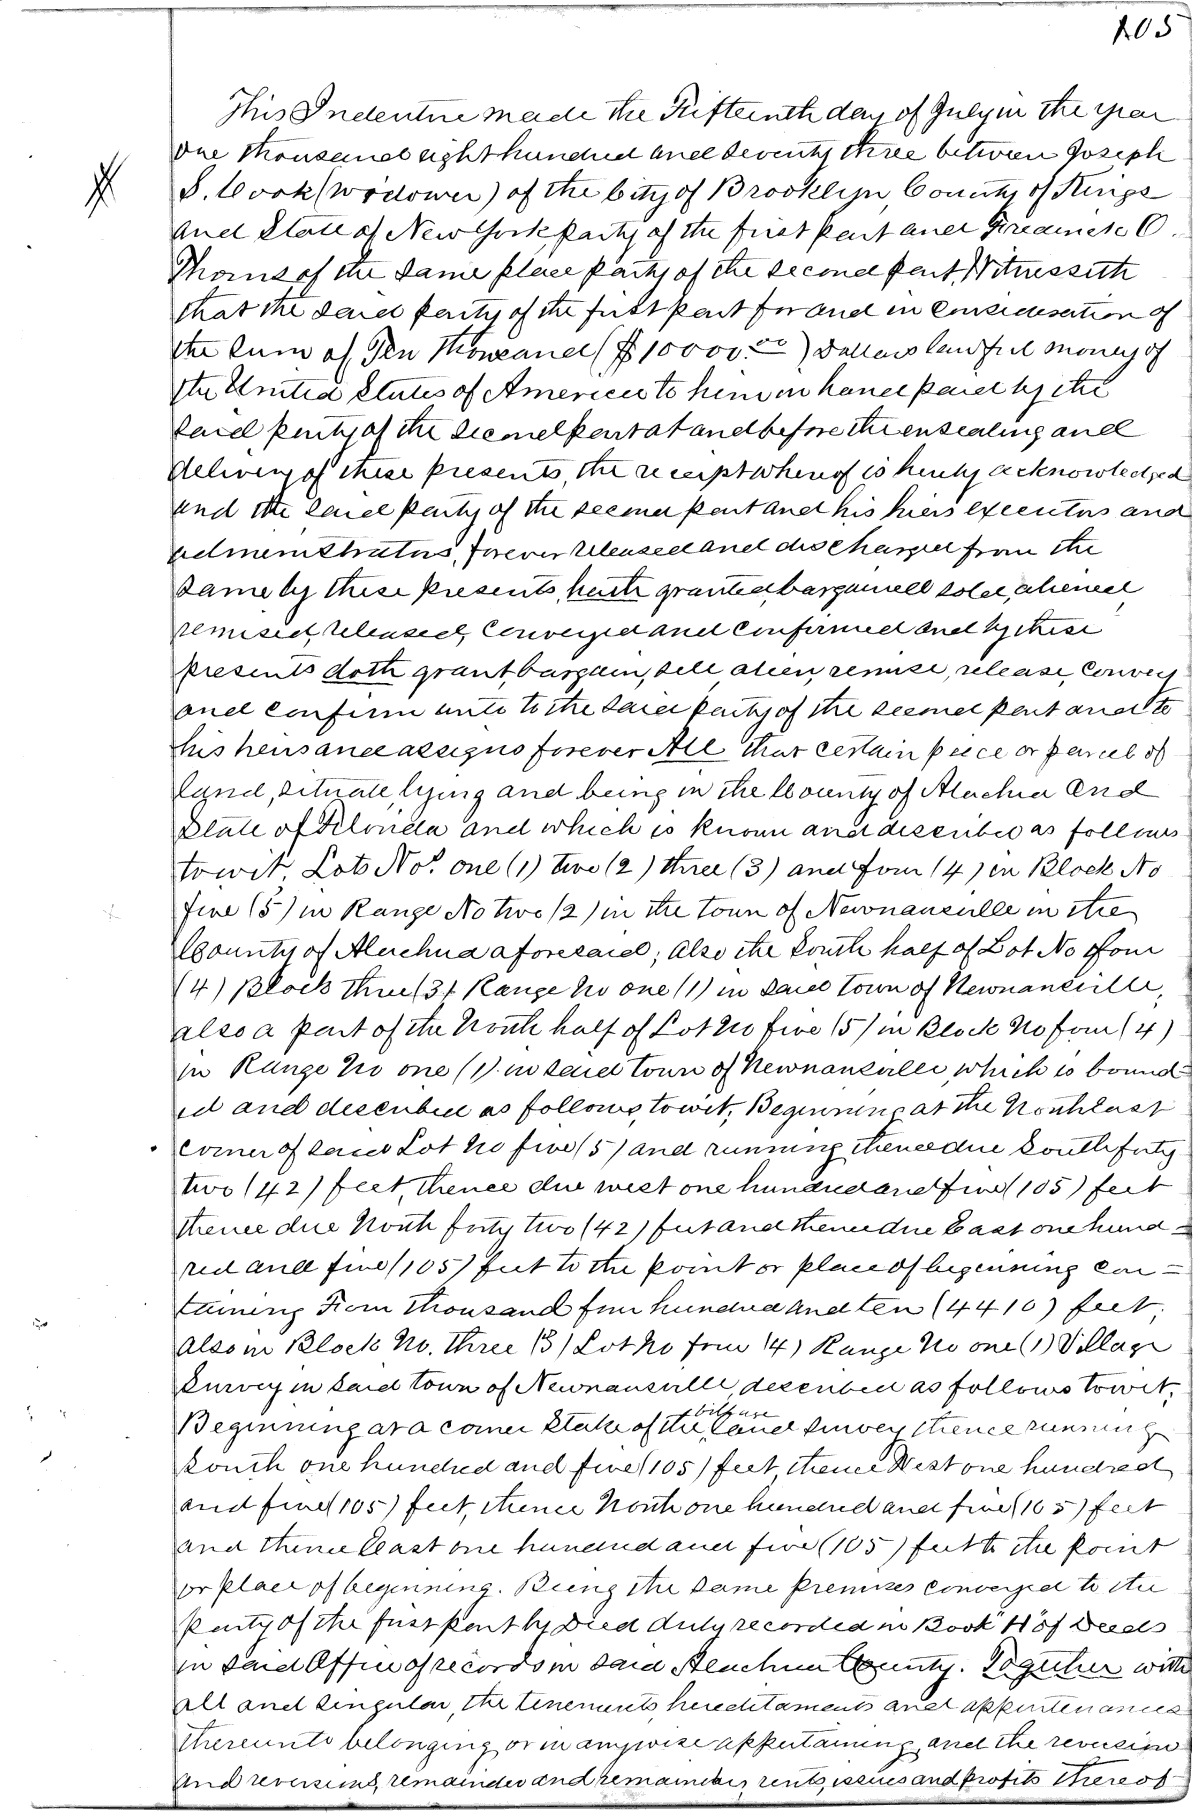 105
This Indenture made the Fifteenth day of July in the year
one thousand eight hundred and seventy three between Joseph
S. Cook (widower) of the City of Brooklyn, County of Kings
and State of New York, party of the first part and Frederick O.
Thorns of the same place party of the second part, Witnesseth
that the said party of the first part for and in consideration of
the sum of Ten Thousand ($10000.00) Dollars lawful money of
the United States of America to him in hand paid by the
said party of the second part at and before the ensealing and
delivery of these presents, the receipt whereof is hereby acknowledged
and the said party of the second part and his heirs executors and
administrators, forever released and discharged from the
same by these presents, hath granted, bargained sold, aliened,
remised, released, conveyed and confirmed and by these
presents doth grant, bargain, sell, alien, remise, release, convey
and confirm unto to the said party of the second part and to
his heirs and assigns forever All that certain piece or parcel of
land, situate, lying and being in the County of Alachua and
State of Florida and which is known and described as follows
to wit, Lots Nos. one (1) two (2) three (3) and four (4) in Block No
five (5) in Range No two (2) in the town of Newnansville in the
County of Alachua aforesaid; also the South half of Lot No four
(4) Block three (3) Range No one (1) in said town of Newnansville,
also a part of the North half of Lot No five (5) in Block No four (4)
in Range No one (1) in said town of Newnansville, which is bound=
ed and described as follows, to wit; Beginning at the North East
corner of said Lot No five (5) and running thence due South forty
two (42) feet, thence due west one hundred and five (105) feet
thence due North forty two (42) feet and thence due East one hund=
red and five (105) feet to the point or place of beginning con=
taining Four thousand four hundred and ten (4410) feet;
also in Block No. three (3) Lot No four (4) Range No one (1) Village
Survey in said town of Newnansville, described as follows to wit;
Beginning at a corner stake of the land survey thence running
South one hundred and five (105) feet, thence West one hundred
and five (105) feet, thence North one hundred and five (105) feet
and thence East one hundred and five (105) feet to the point
or place of beginning. Being the same premises conveyed to the
party of the first part by Deed duly recorded in Book "H" of Deeds
in said Office of records in said Alachua County. Together with
all and singular, the tenements, hereditaments and appurtenances
thereunto belonging, or in anywise appertaining, and the reversion
and reversions, remainder and remainders, rents, issues and profits thereof